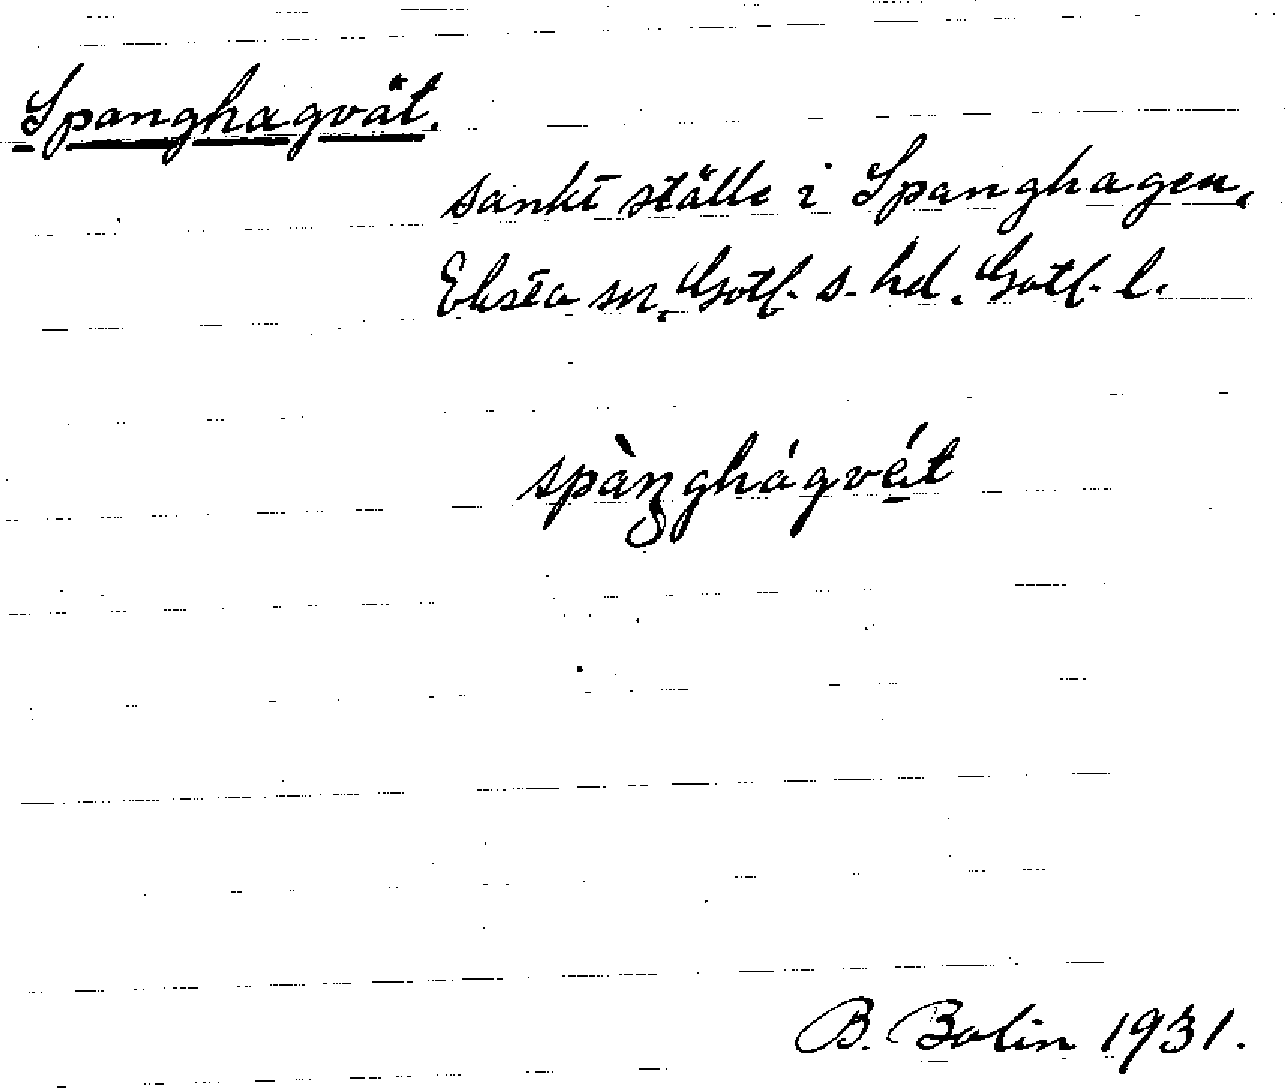 Spanghagvät.
sankt ställe i Spanghagen,
Eksta sn, Gotl. s. hd. Gotl. l.
spàŋghágvét
B. Bolin 1931.